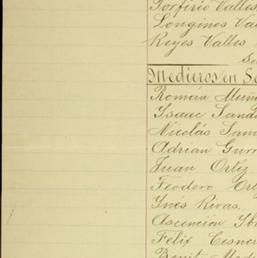 Porfirio Valles
Longinos Va
Reyes Valles
Se
Medieros en Sa
Román Muñ
Isaac Sand
Nicolás Sam
Adrian Gurr
Juan Ortiz
Teodoro Ort
Ynés Rivas.
Ascención Yb
Felix Cisner
Benit